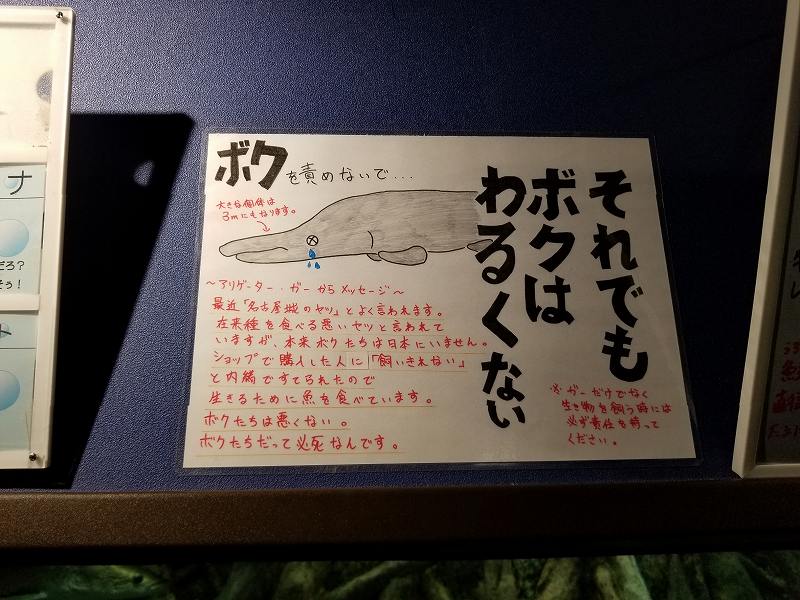 ボクを責めないで...
大きな個体は
3mにもなります。
それでも
ボクは
わるくない
～アリゲーター・ガーからメッセージ～
最近「名古屋城のヤツ」とよく言われます。
在来種を食べる悪いヤツと言われて
いますが、本来ボクたちは日本にいません。
ショップで購入した人に「飼いきれない」
と内緒ですてられたので
生きるために魚を食べています。
ボクたちは悪くない。
ボクたちだって必死なんです。
※ガーだけでなく
生き物を飼う時には
必ず責任を持って
ください。
ナ
だろ?
そう!